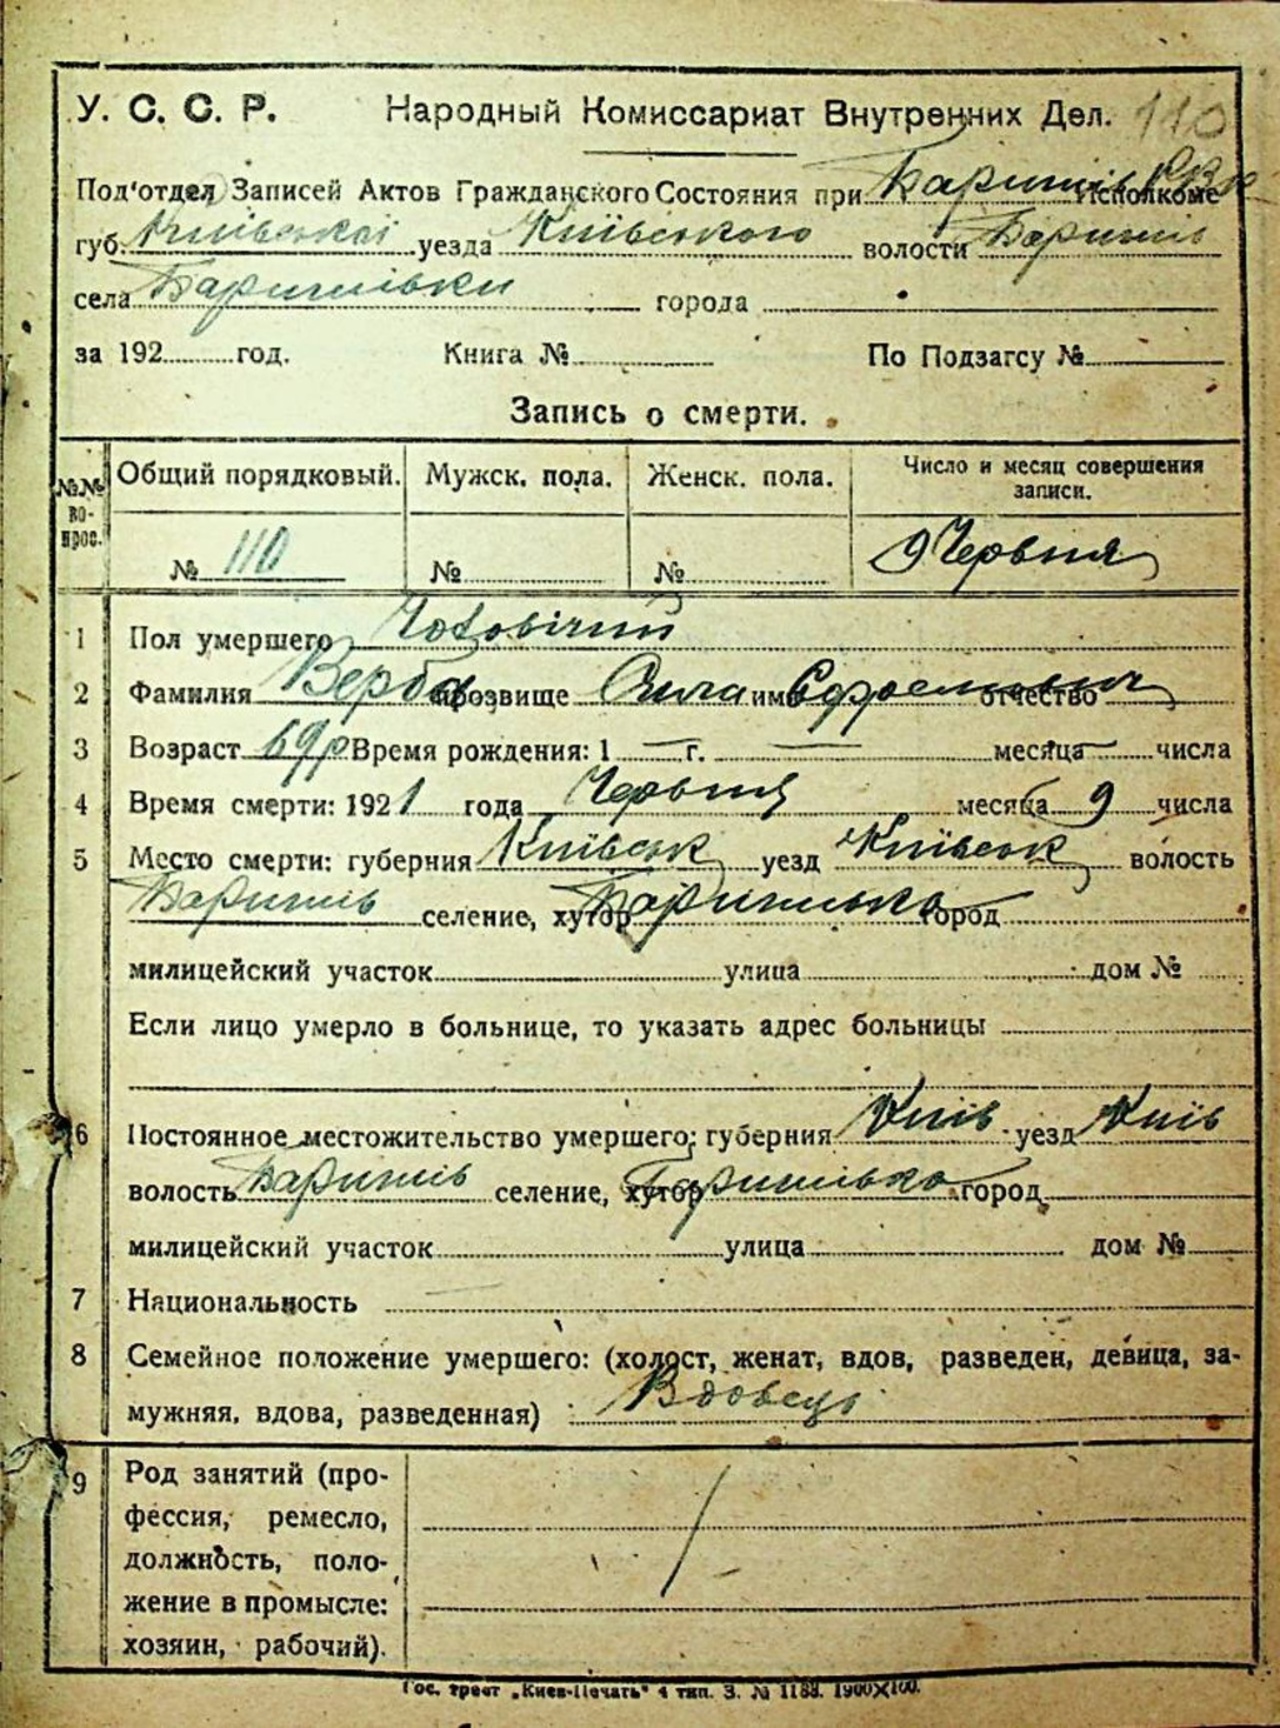 У. С. С. Р. Народный Комиссариат Внутренних Дел. 110
Под'отдел Записей Актов Гражданского Состояния при Баришів Исполкоме
губ. Київської уезда Київського волости Баришів
села Баришівки города
за 192 год. Книга № По Подзагсу №
Запись о смерти.
№№ вопрос. Общий порядковый. Мужск. пола. Женск. пола. Число и месяц совершения записи.
№ 110 № № 9 Червня
1 Пол умершего Чоловічий
2 Фамилия Верба прозвище имя отчество
3 Возраст 69 р Время рождения: 1 — г. — месяца — числа
4 Время смерти: 1921 года Червня месяца 9 числа
5 Место смерти: губерния Київськ уезд Київськ волость
Баришів селение, хутор Баришівка город
милицейский участок улица дом №
Если лицо умерло в больнице, то указать адрес больницы
6 Постоянное местожительство умершего: губерния Київ уезд Київ
волость Баришів селение, хутор Баришівка город
милицейский участок улица дом №
7 Национальность
8 Семейное положение умершего: (холост, женат, вдов, разведен, девица, за-
мужняя, вдова, разведенная) Вдовець
9 Род занятий (про-
фессия, ремесло,
должность, поло-
жение в промысле:
хозяин, рабочий).
Гос. трест „Киев-Печать“ 4 тип. З. № 1188. 1900×100.